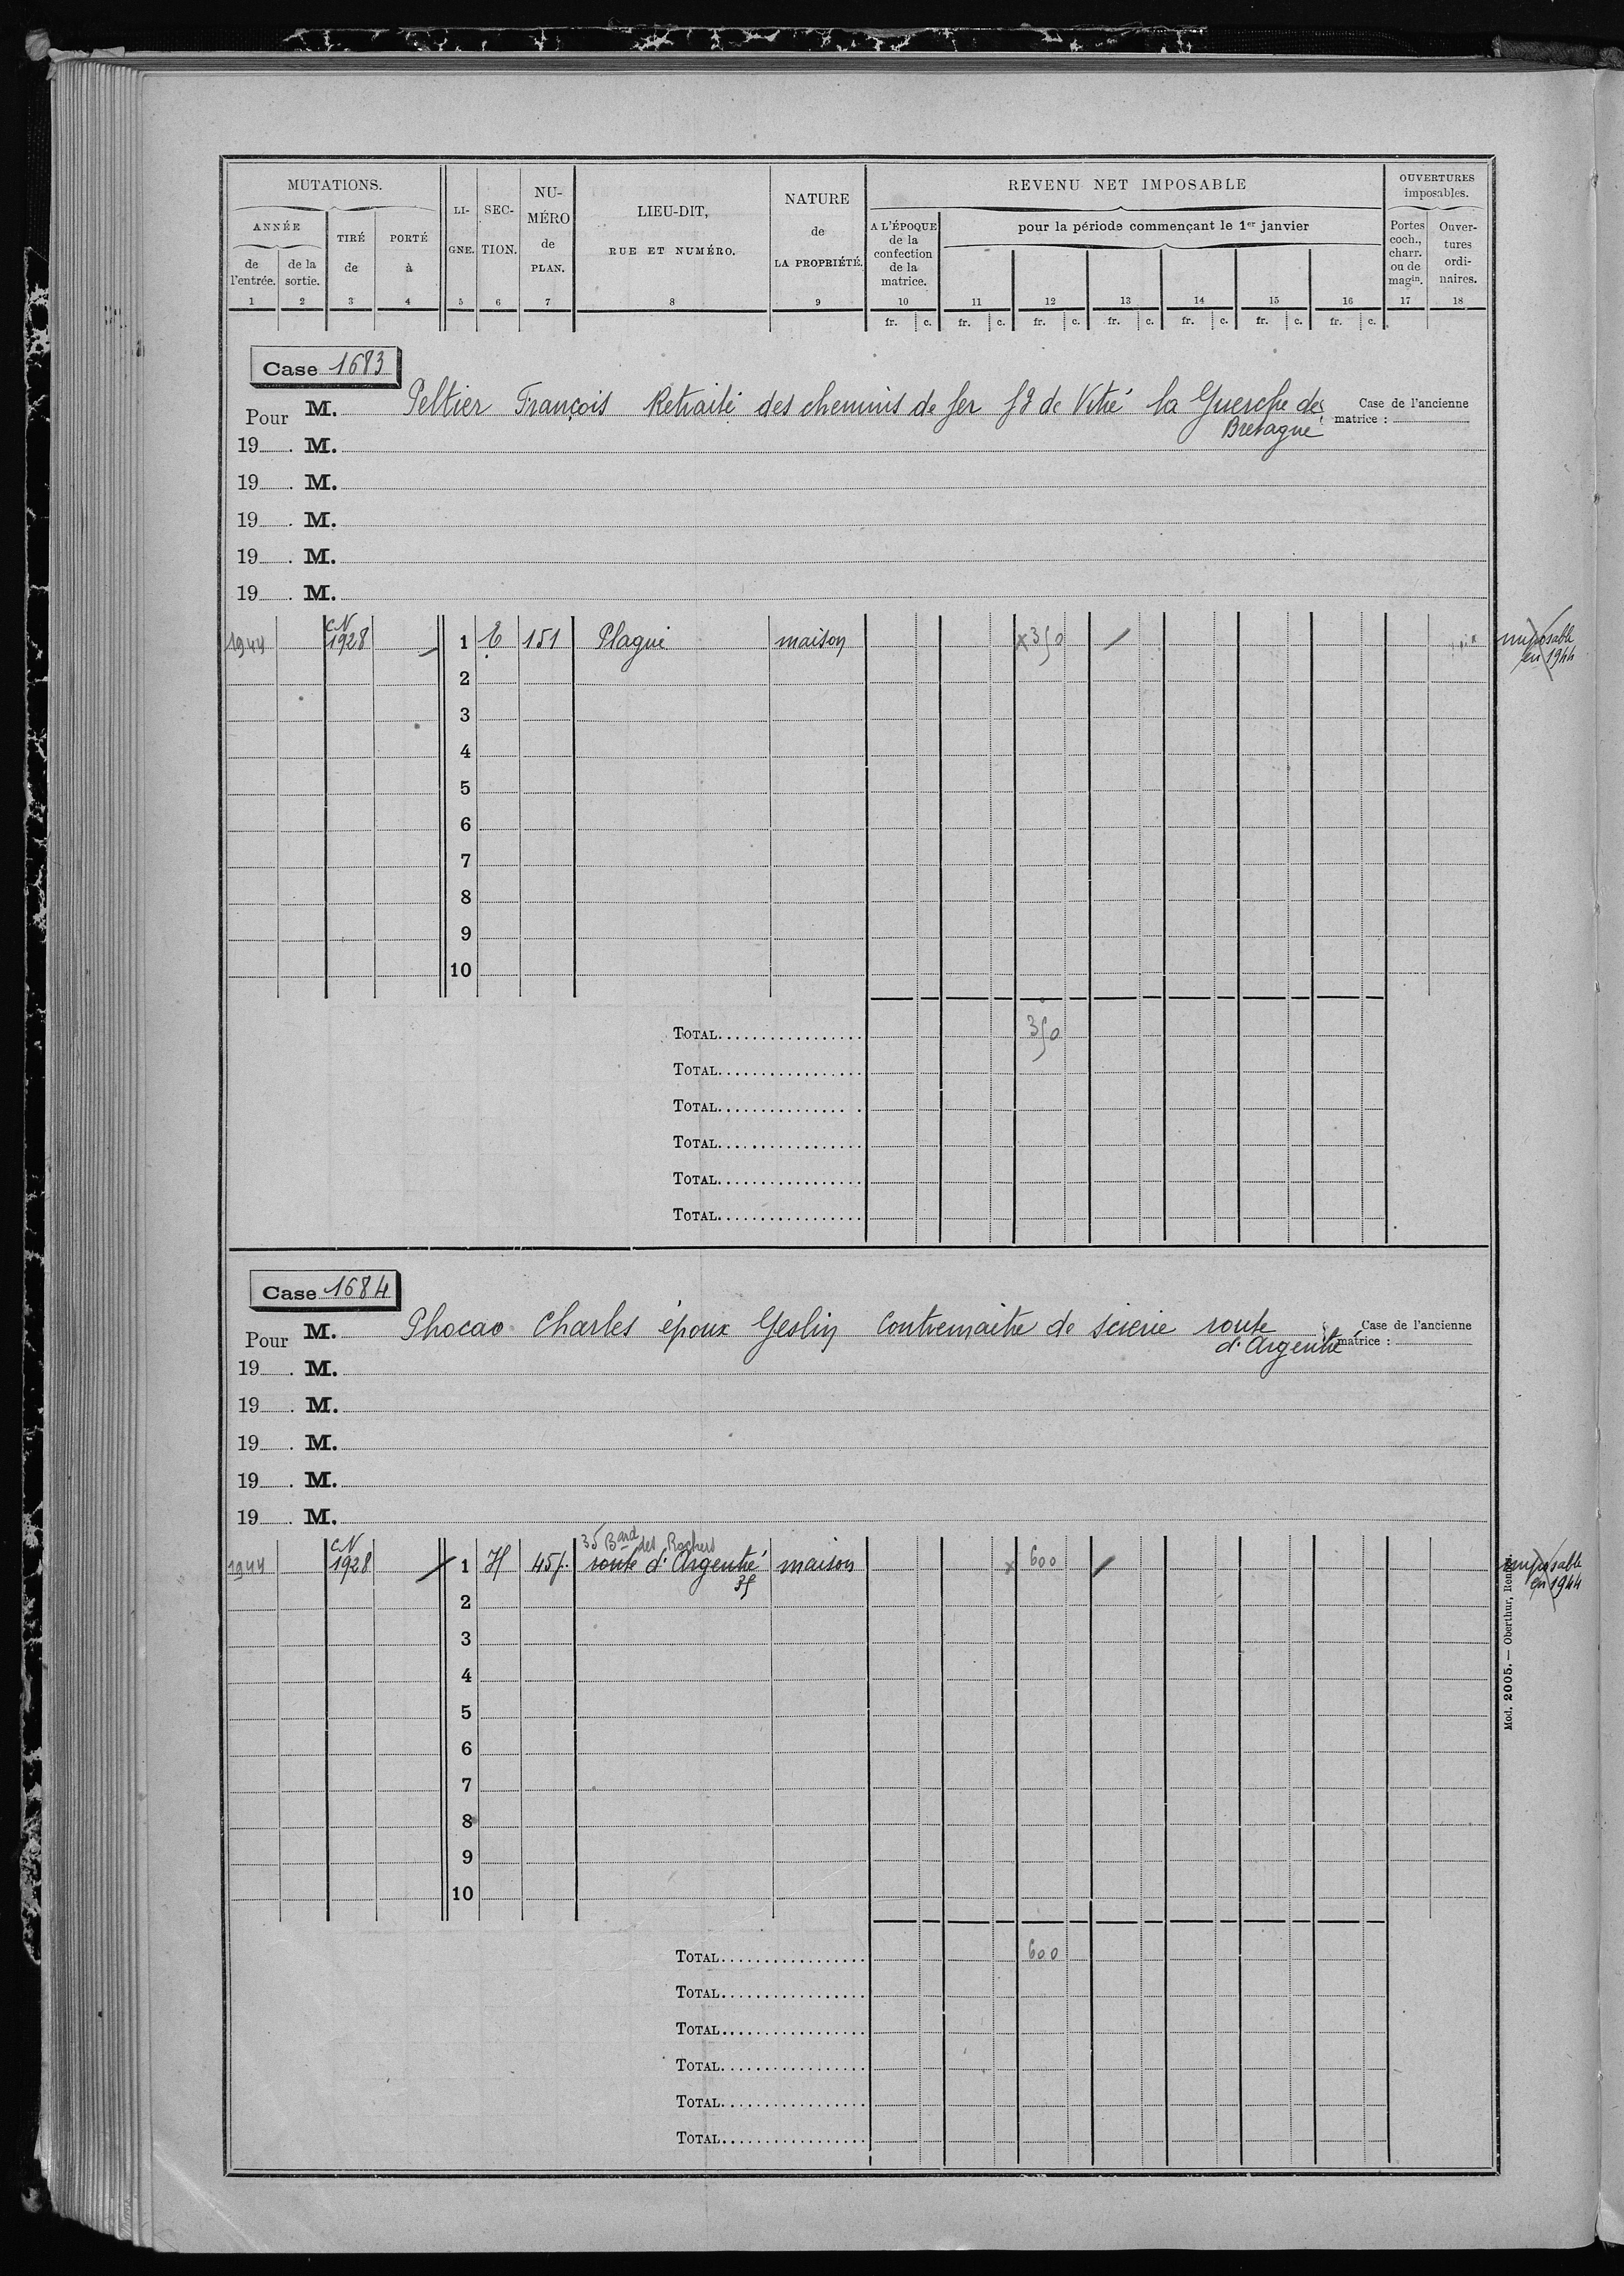 MUTATIONS.
ANNÉE
de l'entrée.
de la sortie.
TIRÉ de
PORTÉ à
LIGNE.
SECTION.
NUMÉRO de PLAN.
LIEU-DIT,
RUE ET NUMÉRO.
NATURE
de
LA PROPRIÉTÉ.
REVENU NET IMPOSABLE
A L'ÉPOQUE de la confection de la matrice.
pour la période commençant le 1er janvier
OUVERTURES imposables.
Portes coch., charr. ou de magin.
Ouver-tures ordi-naires.
1 2 3 4 5 6 7 8 9 10 11 12 13 14 15 16 17 18
fr. c. fr. c. fr. c. fr. c. fr. c. fr. c. fr. c.
Case 1683
Pour M. Peltier François Retraité des chemins de fer de Vitré la Guerche de
Bretagne
Case de l'ancienne matrice :
19 M.
19 M.
19 M.
19 M.
19 M.
cN
1944 1928 1 E 151 Plague maison x 350
imposable
en 1944
2
3
4
5
6
7
8
9
10
TOTAL 350
TOTAL
TOTAL
TOTAL
TOTAL
TOTAL
Case 1684
Pour M. Phocas Charles époux Geslin Contremaitre de scierie route
d'Argentré
Case de l'ancienne matrice :
19 M.
19 M.
19 M.
19 M.
19 M.
35 Bard des Rochers
cN
1944 1928 1 H 45 route d'Argentré maison x 600
imposable
en 1944
2
3
4
5
6
7
8
9
10
TOTAL 600
TOTAL
TOTAL
TOTAL
TOTAL
TOTAL
Mod. 2005. — Oberthur, Rennes.